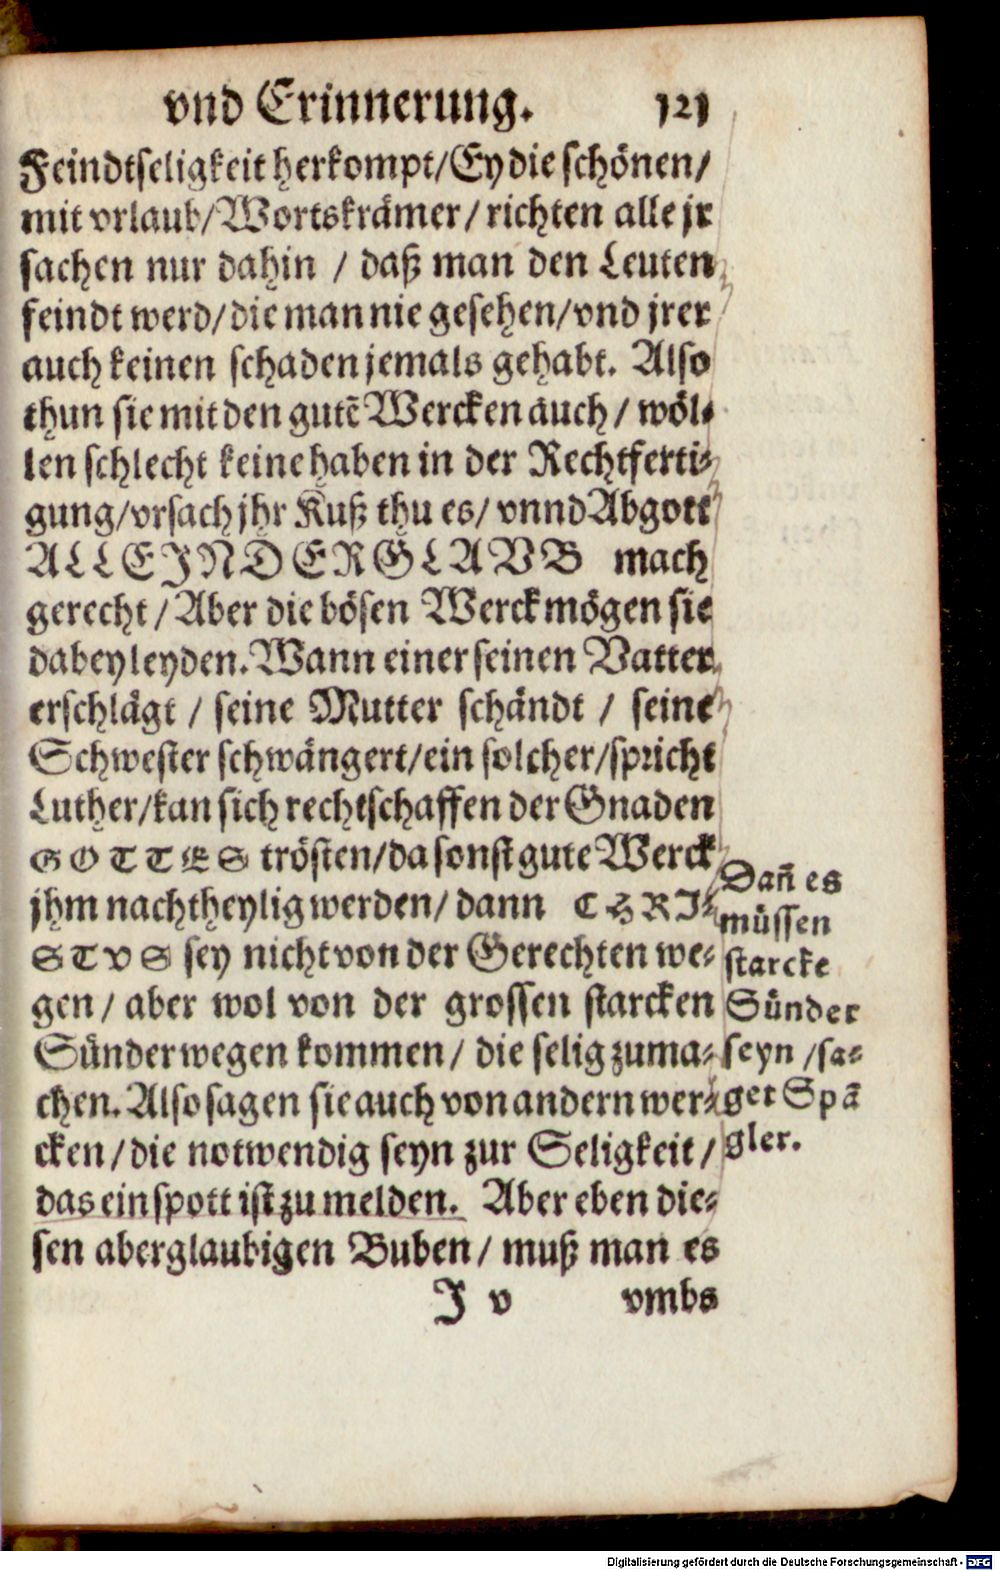 vnd Erinnerung. 121
Feindtseligkeit herkompt/Ey die schönen/
mit vrlaub/Wortskrämer/richten alle jr
sachen nur dahin / daß man den Leuten
feindt werd/die man nie gesehen/vnd jrer
auch keinen schaden jemals gehabt. Also
thun sie mit den gutẽ Wercken auch / wöl-
len schlecht keine haben in der Rechtferti-
gung/vrsach jhr Kuß thu es/ vnnd Abgott
ALLEIN DER GLAVB mach
gerecht/Aber die bösen Werck mögen sie
dabey leyden. Wann einer seinen Vatter
erschlägt / seine Mutter schändt / seine
Schwester schwängert/ein solcher/spricht
Luther/kan sich rechtschaffen der Gnaden
GOTTES trösten/da sonst gute Werck
jhm nachtheylig werden/ dann CHRI-
STVS sey nicht von der Gerechten we-
gen/ aber wol von der grossen starcken
Sünder wegen kommen/ die selig zuma-
chen. Also sagen sie auch von andern wer-
cken/die notwendig seyn zur Seligkeit/
das ein spott ist zu melden. Aber eben die-
sen aberglaubigen Buben/ muß man es
J v vmbs
Dañ es
müssen
starcke
Sünder
seyn /sa-
get Spã
gler.
Digitalisierung gefördert durch die Deutsche Forschungsgemeinschaft - DFG